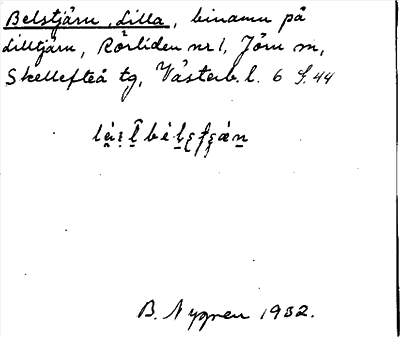 Belstjärn, Lilla, binamn på
Lilltjärn, Rörliden nr 1, Jörn sn,
Skellefteå tg, Västerb. l. 6 S. 44
B. Nygren 1932.